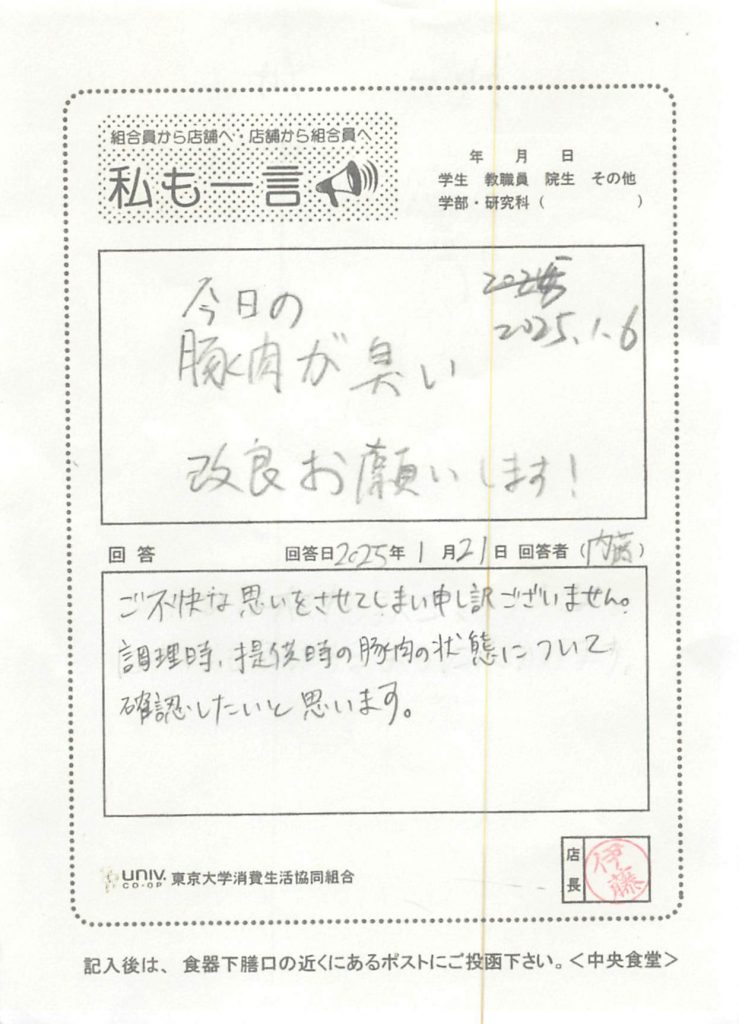 組合員から店舗へ・店舗から組合員へ
私も一言
年 月 日
学生 教職員 院生 その他
学部・研究科（ ）
今日の
豚肉が臭い
2025.1.6
改良お願いします！
回答 回答日2025年1月21日 回答者（内藤）
ご不快な思いをさせてしまい申し訳ございません。
調理時、提供時の豚肉の状態について
確認したいと思います。
UNIV. CO-OP 東京大学消費生活協同組合
店長 伊藤
記入後は、食器下膳口の近くにあるポストにご投函下さい。＜中央食堂＞